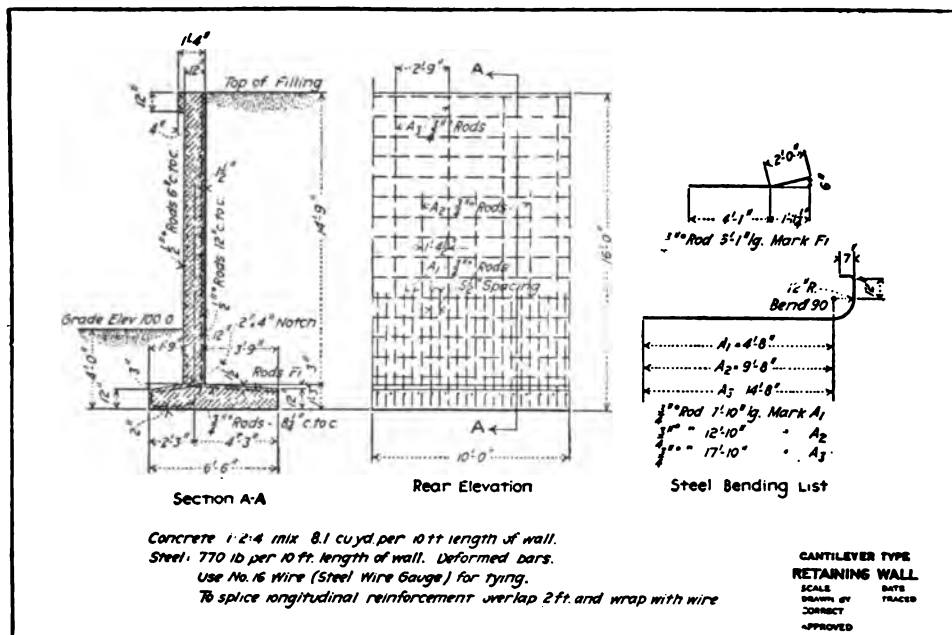 1'-4"
12"
Top of Filling
12"
4"
½"ᵒ Rods 6" c. to c.
½"ᵒ Rods 12" c. to c.
14'-9"
Grade Elev 100.0
2"x4" Notch
1'-9"
12"
3'-9"
4'-0"
3"
12"
12"
Rods F1
3"
12"
2"
¾"ᵒ Rods - 8½" c. to c.
2'-3"
4'-3"
6'-6"
Section A-A
2'-9"
A
A3 ¾"ᵒ Rods
A2 ¾"ᵒ Rods
1'-4½"
A1 ¾"ᵒ Rods
5½" Spacing
16'-0"
A
10'-0"
Rear Elevation
2'-0"
6"
4'-1"
¾"ᵒ Rod 5'-1" lg. Mark F1
7"
12" R.
Bend 90
A1 = 4'-8"
A2 = 9'-8"
A3 14'-8"
¾"ᵒ Rod 7'-10" lg. Mark A1
¾"ᵒ " 12'-10" " A2
¾"ᵒ " 17'-10" " A3
Steel Bending List
Concrete 1:2:4 mix 8.1 cu yd. per 10 ft length of wall.
Steel: 770 lb per 10 ft. length of wall. Deformed bars.
Use No. 16 Wire (Steel Wire Gauge) for tying.
To splice longitudinal reinforcement overlap 2 ft. and wrap with wire
CANTILEVER TYPE
RETAINING WALL
SCALE DATE
DRAWN BY TRACED
CORRECT
APPROVED